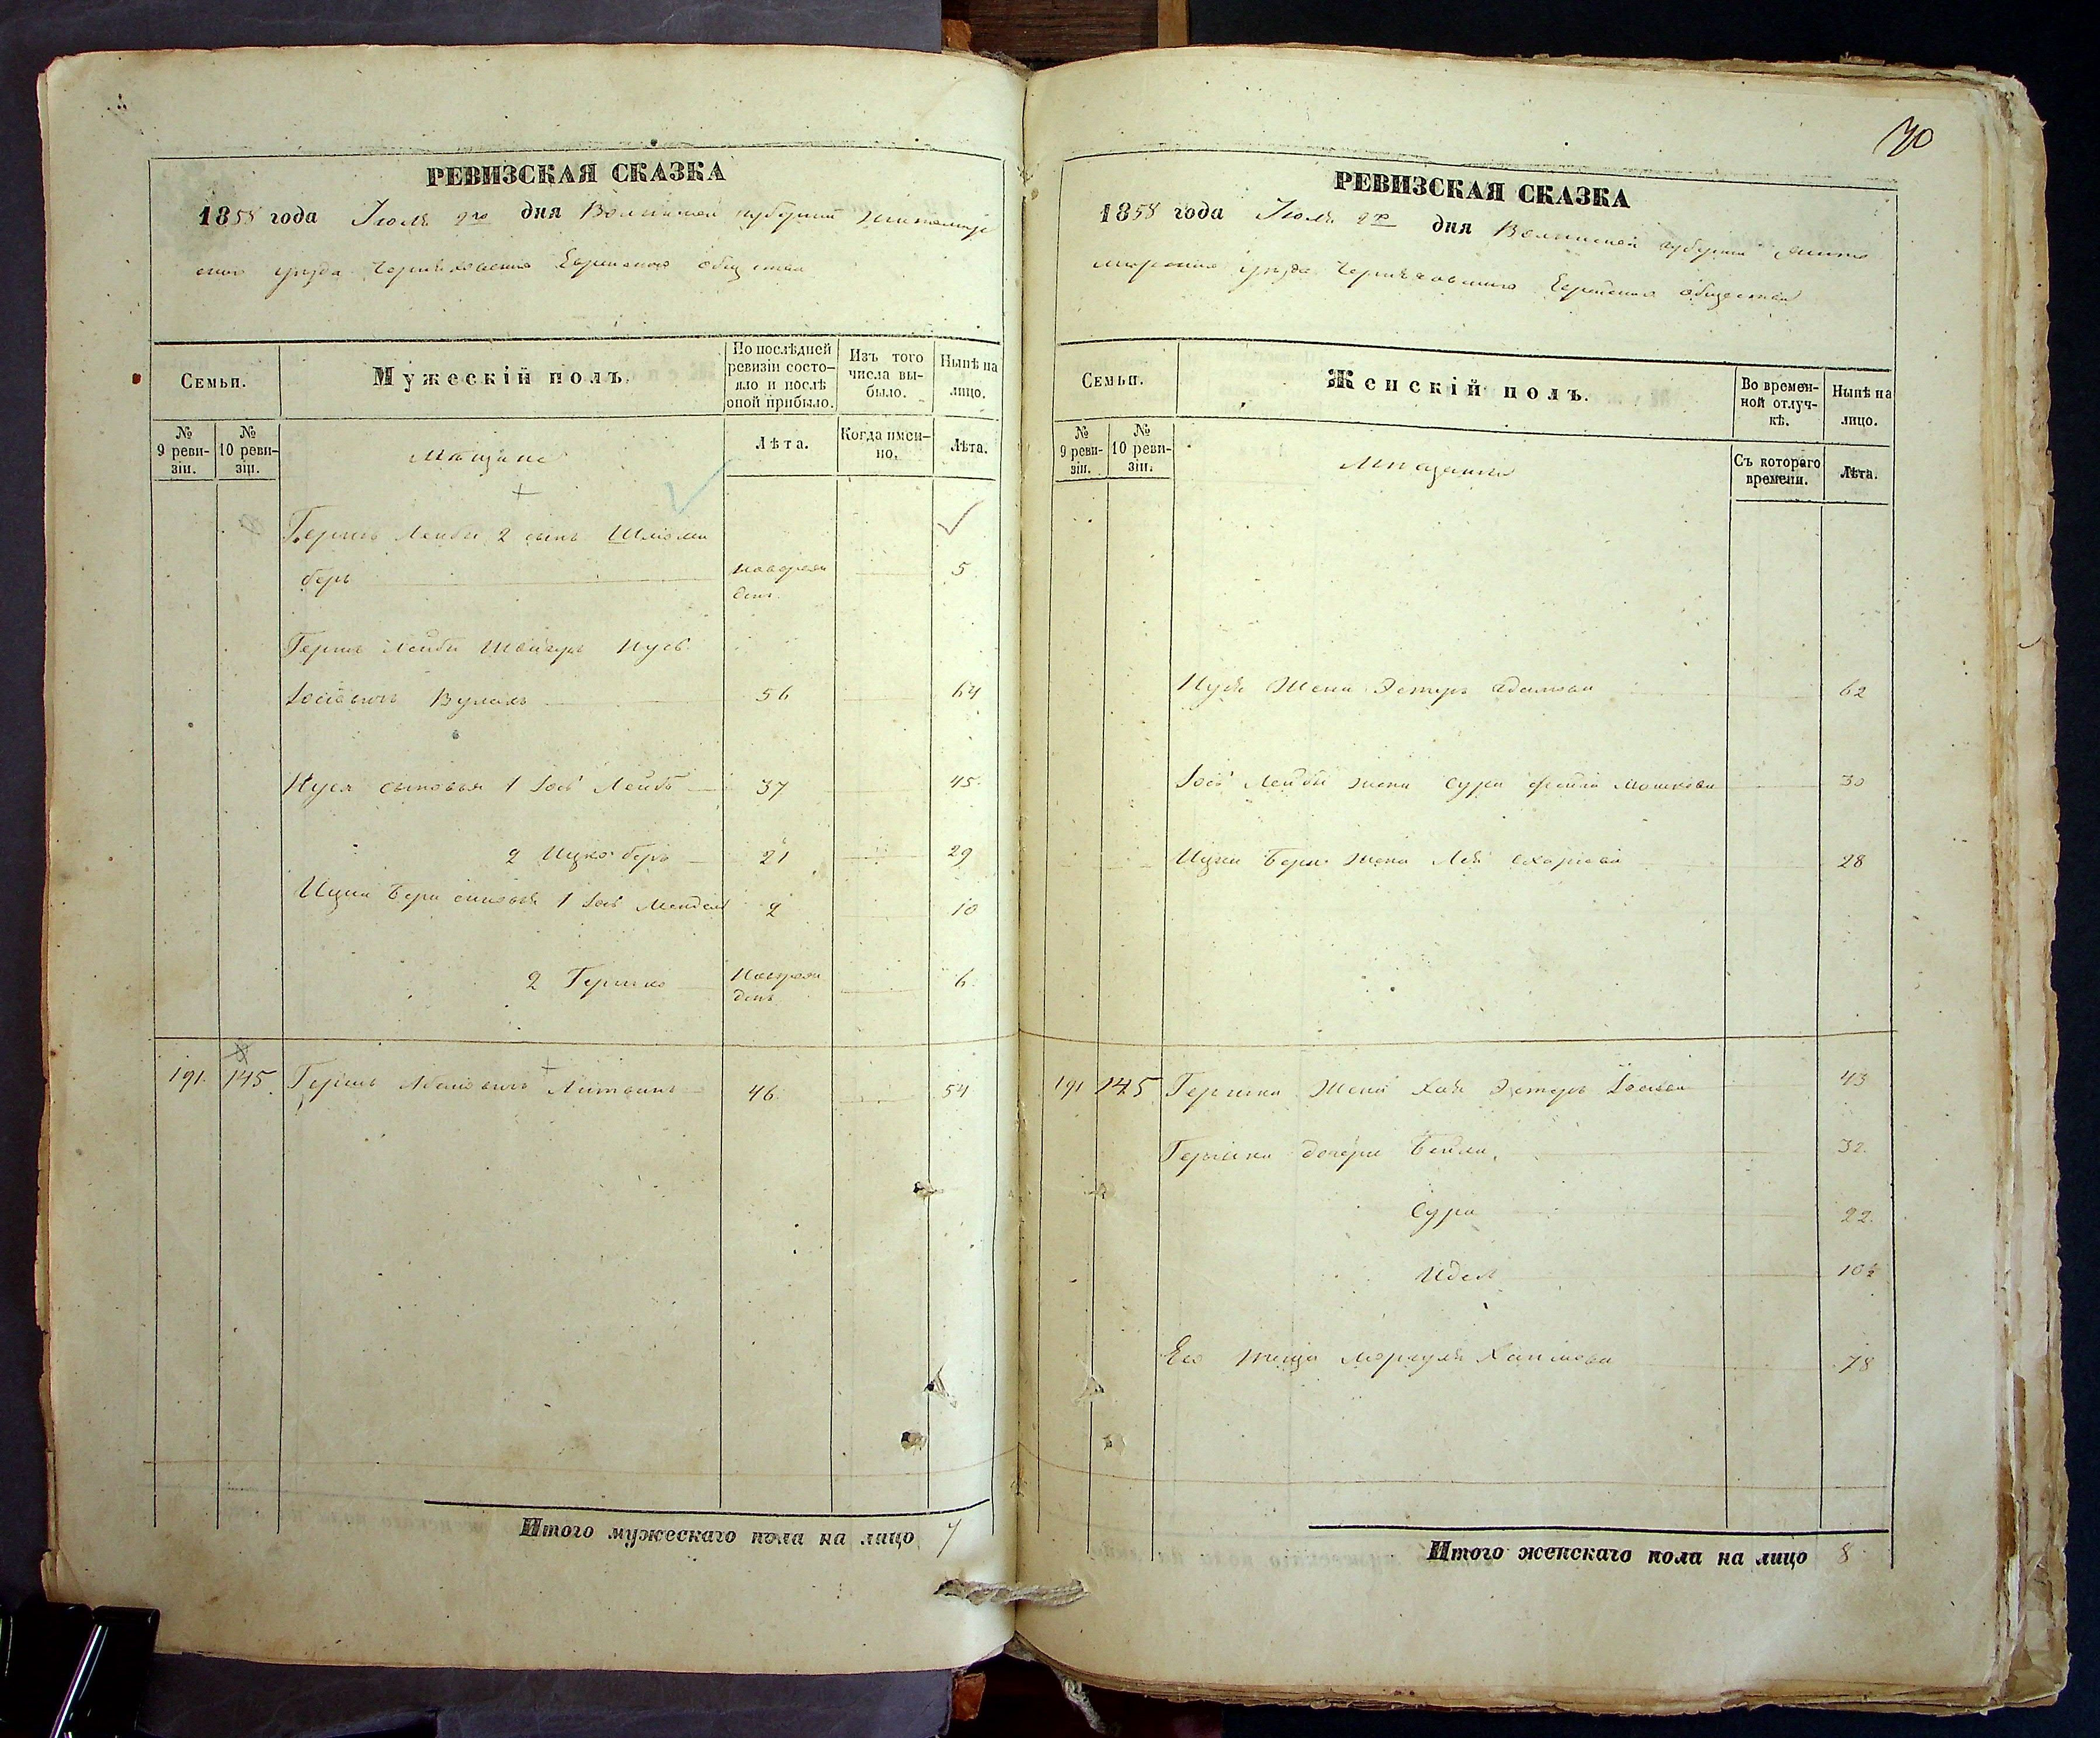 РЕВИЗСКАЯ СКАЗКА
1858 года Іюля 2го дня Волынской губерніи Житомир
скаго уѣзда Черняховскаго Еврейскаго общества
Семьи.
Мужескій полъ.
По послѣдней ревизіи состояло и послѣ оной прибыло.
Изъ того числа выбыло.
Нынѣ на лицо.
№ 9 ревизіи.
№ 10 ревизіи.
Мѣщане
Лѣта.
Когда именно.
Лѣта.
Гершъ Лейбы 2 сынъ Шліома
беръ новорожденъ 5
Гершъ Лейбы Нусь
Іосіовичъ 56 64
Нуся сыновья 1 Іось Лейбъ 37 45
2 Ицко беръ 21 29
Ицки Бера сыновья 1 Іось Мендель 2 10
2 Гершко новорожденъ 6
191. 145. Гершъ Литвинъ 46 54
Итого мужескаго пола на лицо 7
70
РЕВИЗСКАЯ СКАЗКА
1858 года Іюля 2го дня Волынской губерніи Жито
мирскаго уѣзда Черняховскаго Еврейскаго общества
Семьи.
Женскій полъ.
Во временной отлучкѣ.
Нынѣ на лицо.
№ 9 ревизіи.
№ 10 ревизіи.
Мѣщанки
Съ котораго времени.
Лѣта.
Нуся Жена Эстеръ 62
Іося Лейбы жена Сура Фейга Мошкова 30
Ицки Бера жена Лея 28
191 145 Гершка Жена Хая Эстеръ Іосіова 43
Гершка дочери Бейла 32.
Сура 22.
Идел 10½
Его теща Хаимова 78
Итого женскаго пола на лицо 8